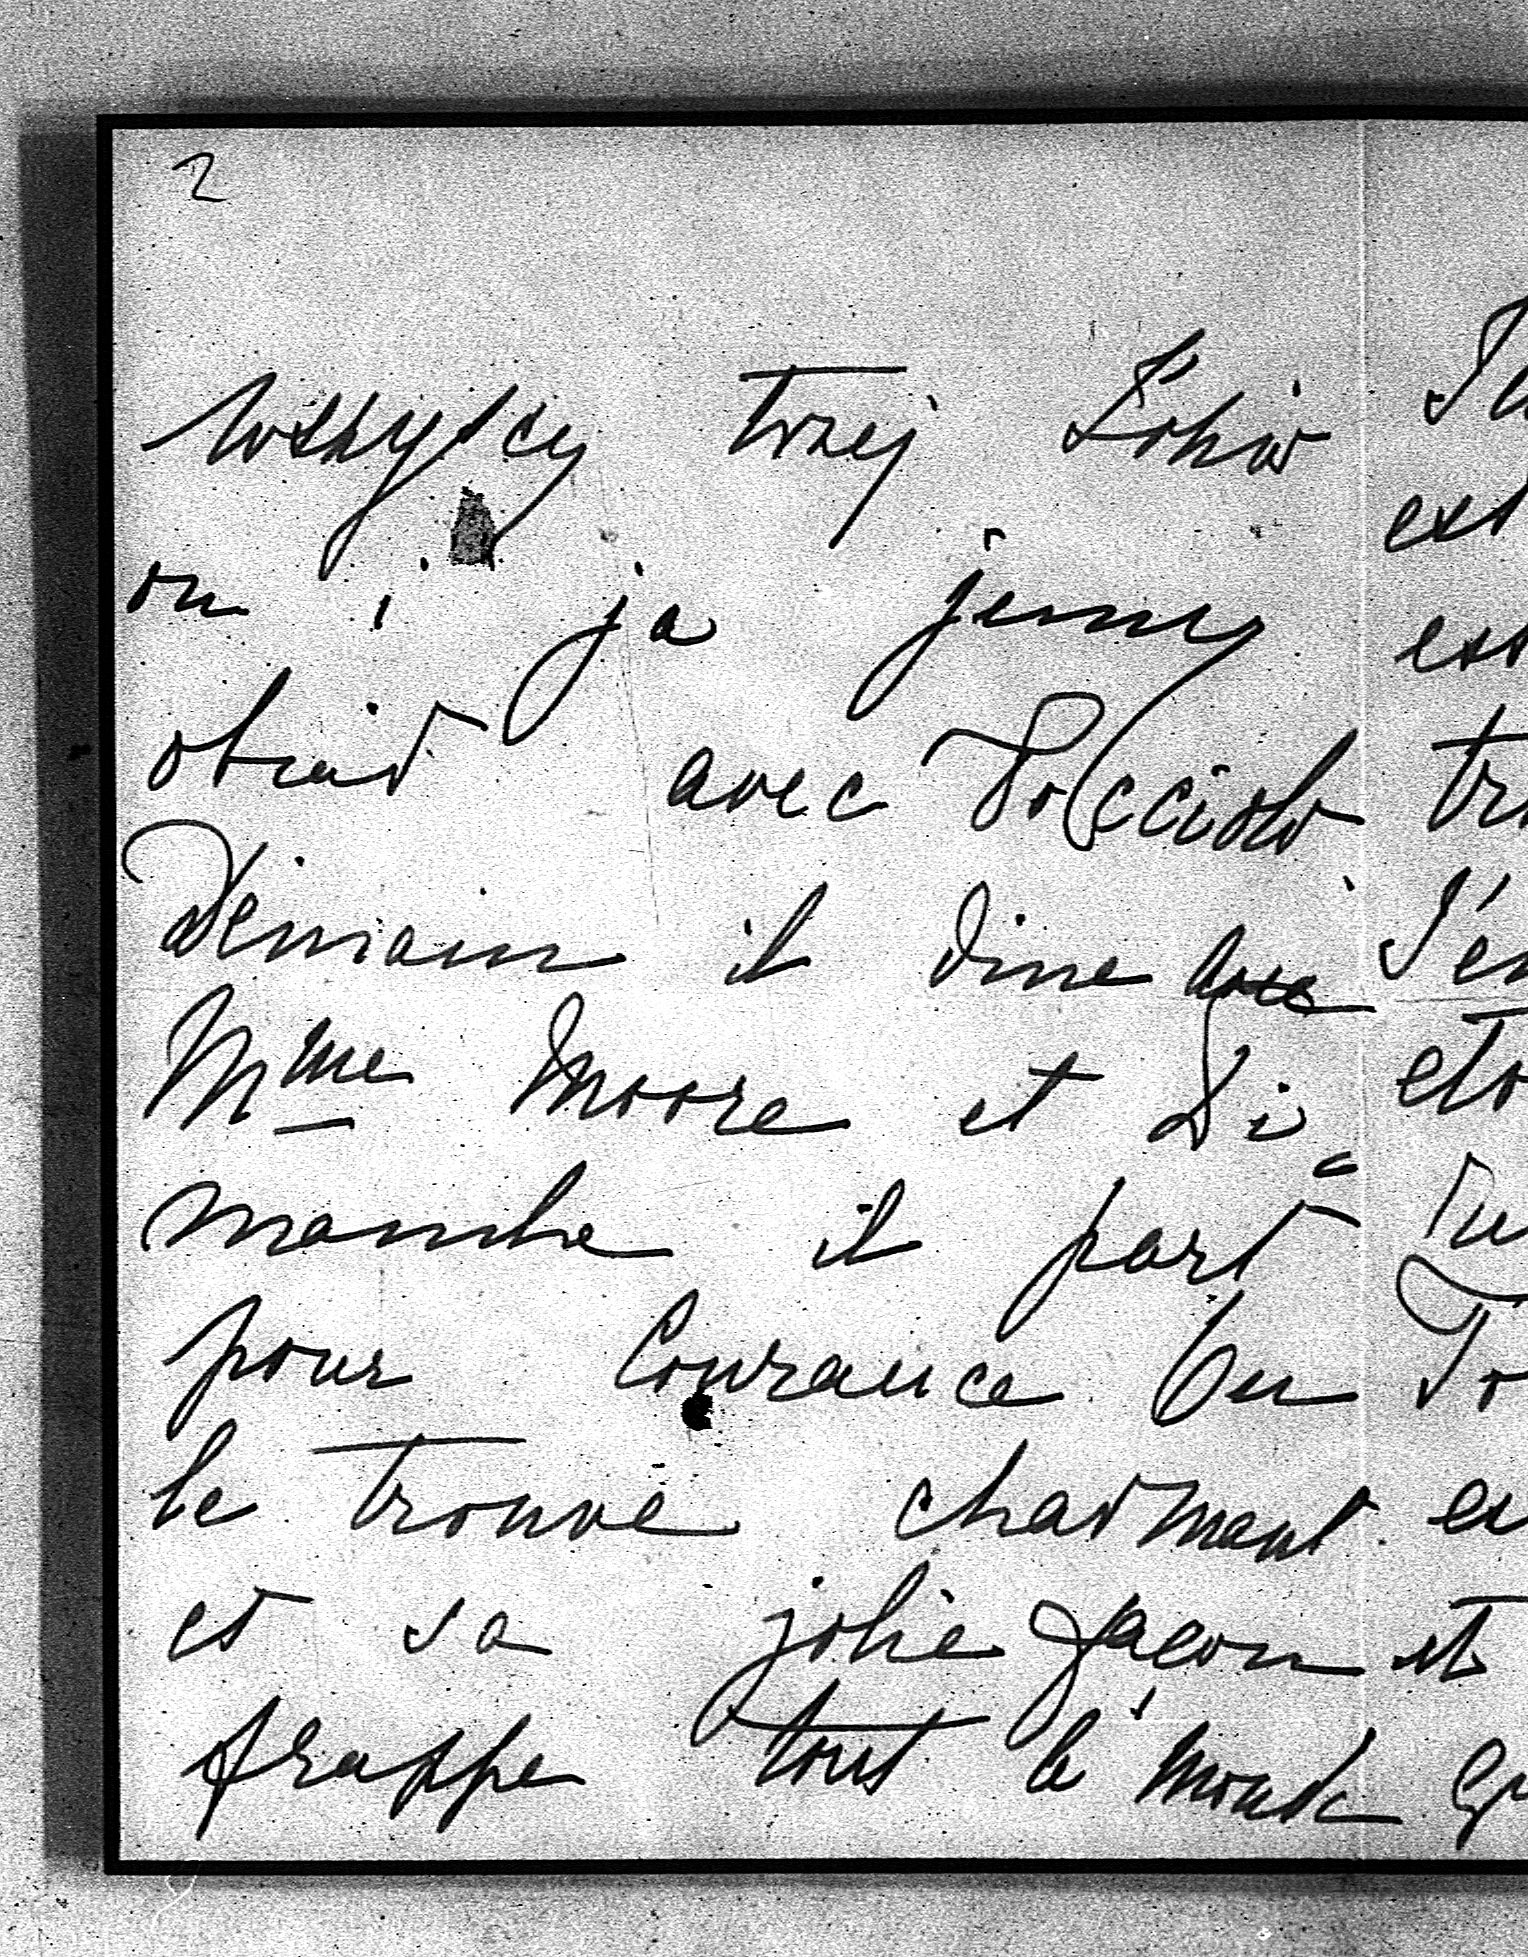 2
wszyscy trzej
on i ja jemy
obiad avec
Demain il dine avec
Mme Moore et Di-
manche il part
pour Courance On
le trouve charmant
et sa jolie façon
frappe tout le monde